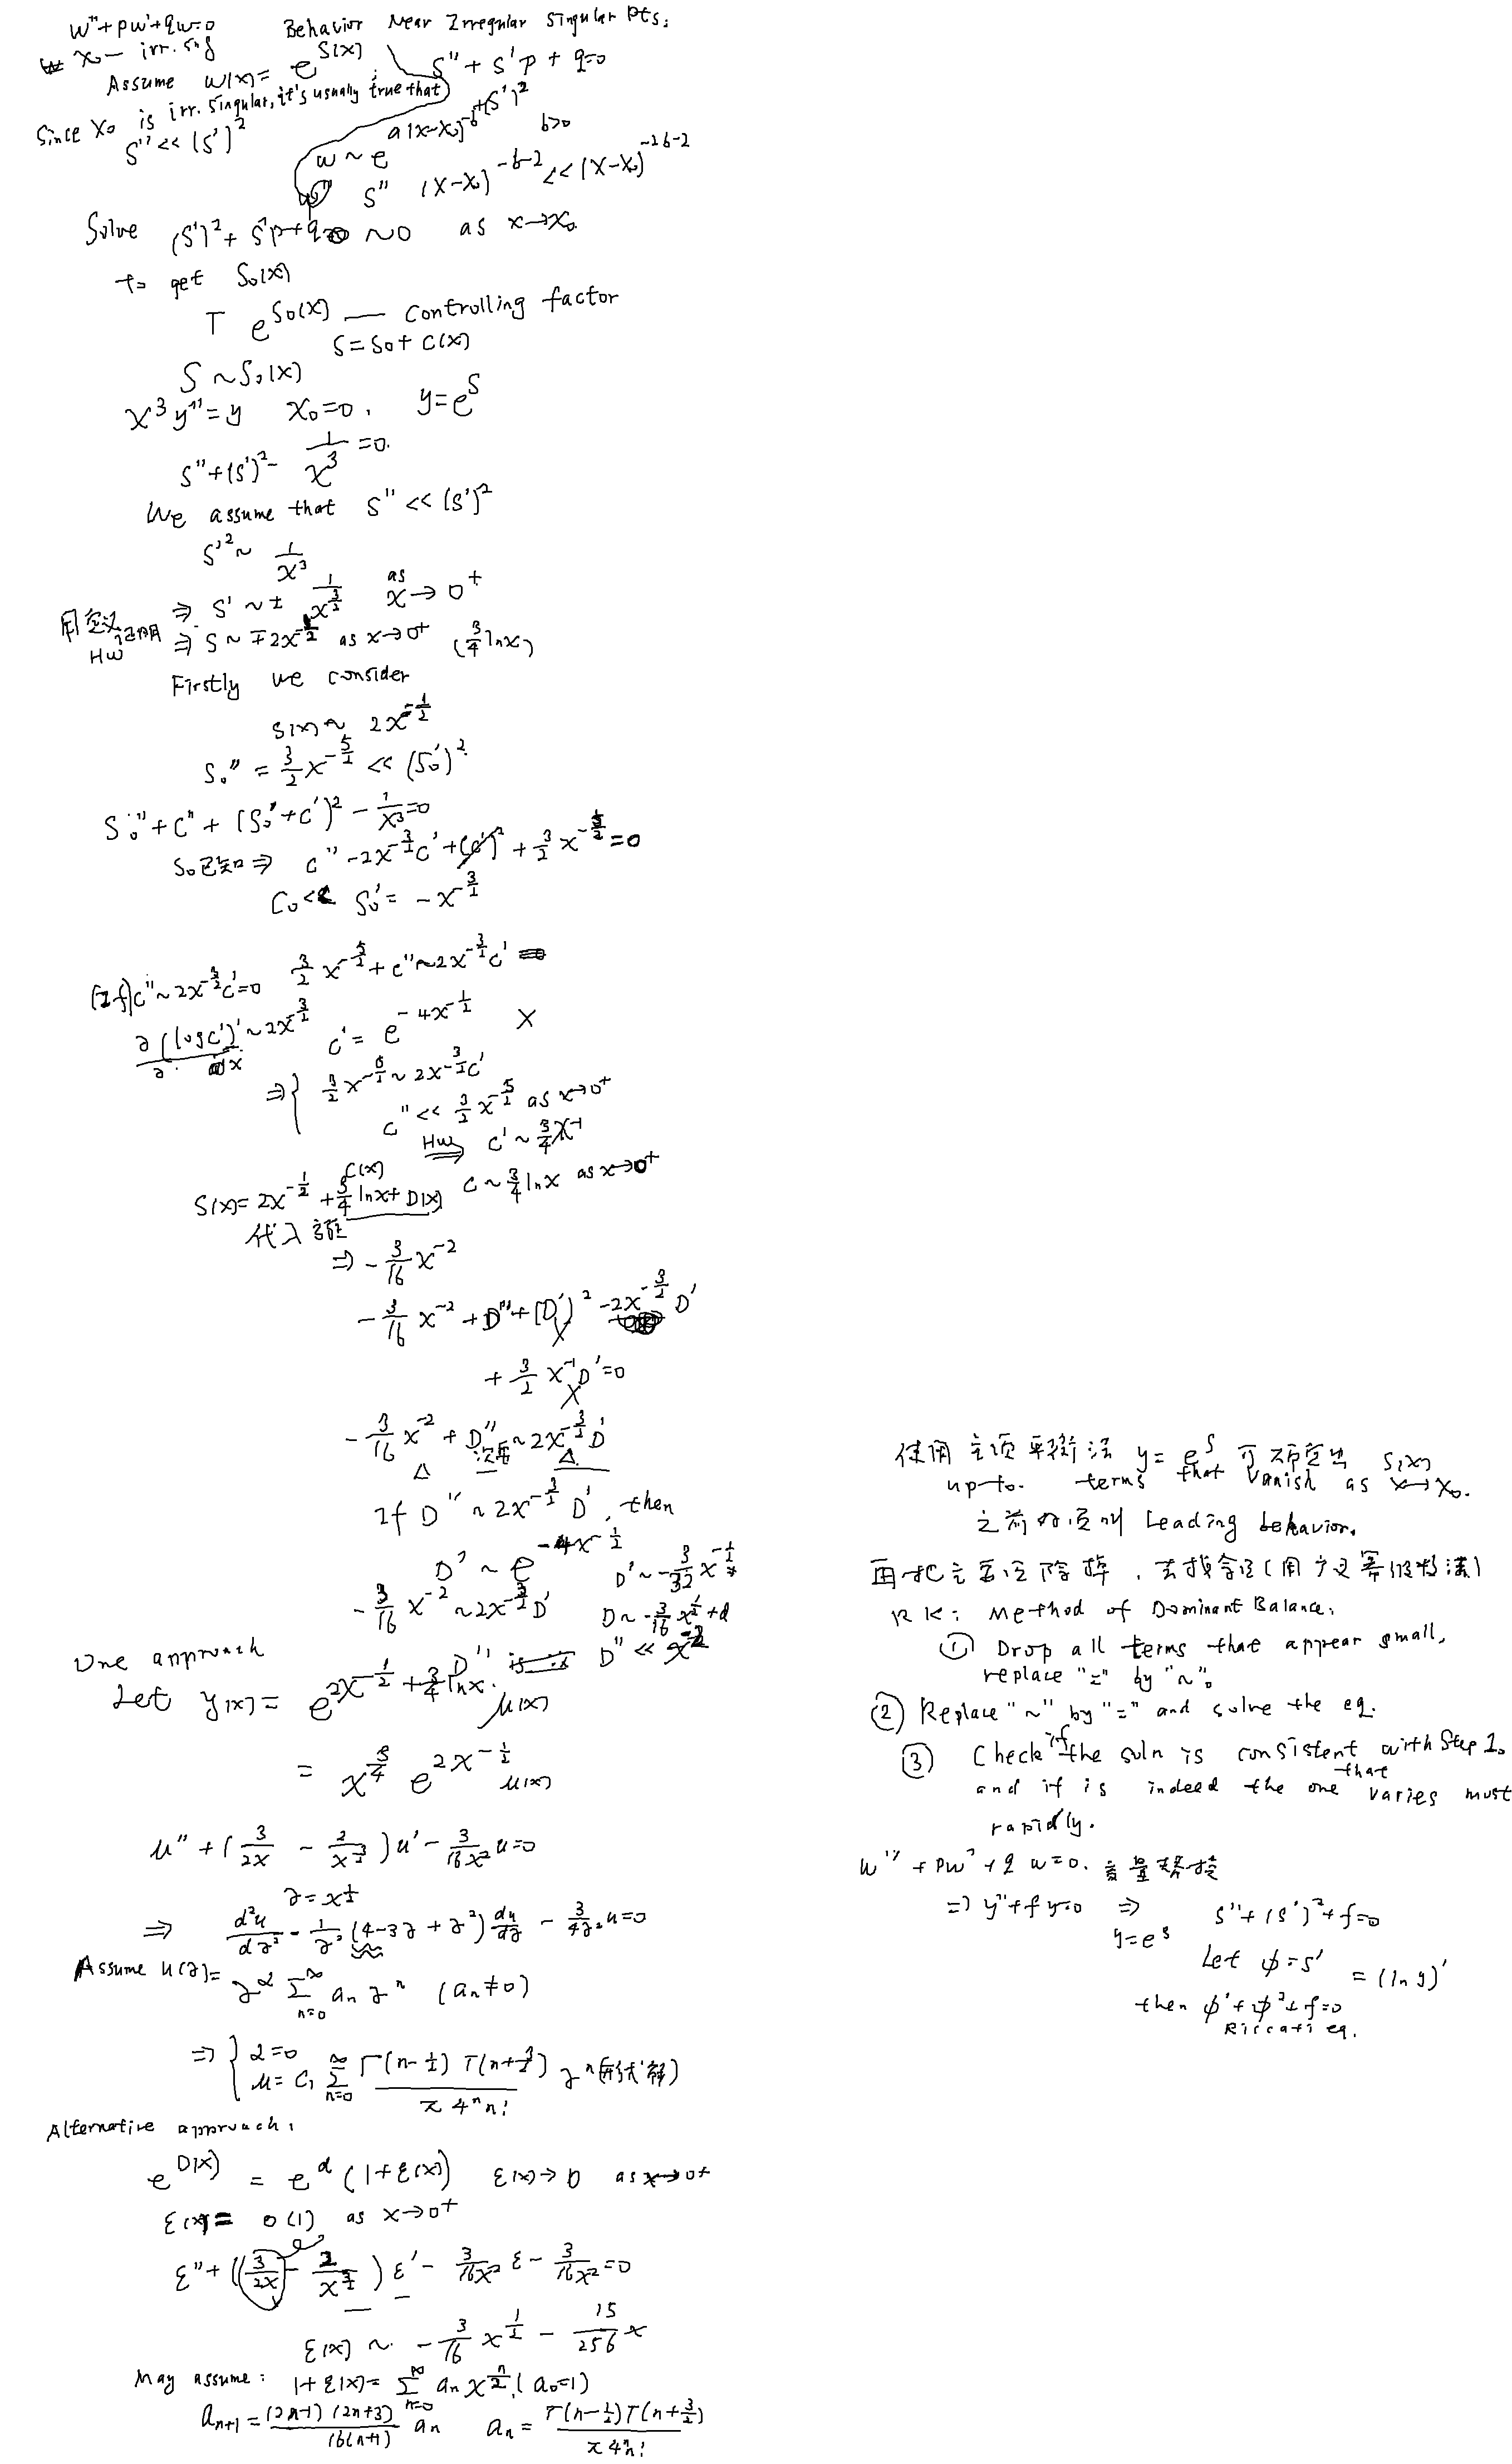 w''+pw'+qw=0 Behavior Near Irregular Singular Pts.
x₀ — irr. sing
Assume w(x)= e^{S(x)}. S''+S'p+q=0
+(S')²
Since x₀ is irr. singular, it's usually true that
S''<<(S')²
w~e^{a(x-x₀)^{-b}} b>0
S'' (x-x₀)^{-b-2}<<(x-x₀)^{-2b-2}
Solve (S')²+S'p+q ~0 as x→x₀
to get S₀(x)
T e^{S₀(x)} — Controlling factor
S=S₀+C(x)
S~S₀(x)
x³y''=y x₀=0. y=e^S
S''+(S')²-1/x³=0.
We assume that S''<<(S')²
S'²~1/x³
⇒ S'~±1/x^{3/2} as x→0⁺
用定义证明
HW
⇒ S~∓2x^{-1/2} as x→0⁺ (3/4 lnx)
Firstly we consider
S(x)~2x^{-1/2}
S₀''=3/2 x^{-5/2}<<(S₀')².
S₀''+C''+(S₀'+C')²-1/x³=0
S₀已知⇒ C''-2x^{-3/2}C'+(C')²+3/2 x^{-5/2}=0
C₀<< S₀'=-x^{-3/2}
(If)C''~2x^{-3/2}C'=0 3/2 x^{-5/2}+C''~2x^{-3/2}C'
∂(logC')'~2x^{-3/2} C'=e^{-4x^{-1/2}} X
⇒{ 3/2 x^{-5/2}~2x^{-3/2}C'
C''<<3/2 x^{-5/2} as x→0⁺
HW⇒ C'~3/4 x^{-1}
C(x)
S(x)=2x^{-1/2}+3/4 lnx+D(x) C~3/4 lnx as x→0⁺
代入方程
⇒ -3/16 x^{-2}
-3/16 x^{-2}+D''+(D')²-2x^{-3/2}D'
+3/2 x^{-1}D'=0
-3/16 x^{-2}+D''~2x^{-3/2}D'
If D''~2x^{-3/2}D', then
D'~e^{-4x^{-1/2}} D'~-3/32 x^{-1/2}
-3/16 x^{-2}~2x^{-3/2}D' D~-3/16 x^{1/2}+d
One approach D'' D''<<x^{-2}
Let y(x)=e^{2x^{-1/2}+3/4 lnx}. u(x)
=x^{3/4} e^{2x^{-1/2}} u(x)
u''+(3/2x-2/x^{3/2})u'-3/16x² u=0
z=x^{1/2}
⇒ d²u/dz²-1/z²(4-3z+z²)du/dz-3/4z² u=0
Assume u(z)=z^α Σ_{n=0}^∞ aₙzⁿ (aₙ≠0)
⇒{ α=0
u=C₁Σ_{n=0}^∞ Γ(n-1/2)Γ(n+3/2)/π4ⁿn! zⁿ(形式解)
Alternative approach:
e^{D(x)}=e^d(1+ε(x)) ε(x)→0 as x→0⁺
ε(x)=o(1) as x→0⁺
ε''+(3/2x-2/x^{3/2})ε'-3/16x² ε-3/16x²=0
ε(x)~-3/16 x^{1/2}-15/256 x
May assume: 1+ε(x)=Σ_{n=0}^∞ aₙx^{n/2}.(a₀=1)
aₙ₊₁=(2n-1)(2n+3)/16(n+1) aₙ aₙ=Γ(n-1/2)Γ(n+3/2)/π4ⁿn!
使用主项平衡法 y=e^S 可确定出 S(x)
up to. terms that vanish as x→x₀.
之前的项叫 Leading behavior.
再把主要项除掉, 去找余项(用广义幂级数法)
RK: Method of Dominant Balance.
① Drop all terms that appear small,
replace "=" by "~".
② Replace "~" by "=" and solve the eq.
③ Check if the soln is consistent with Step 1.
and if is indeed the one that varies must
rapidly.
w''+pw'+qw=0. 变量替换
⇒y''+fy=0 ⇒ S''+(S')²+f=0
y=e^S
Let φ=S' =(lny)'
then φ'+φ²+f=0
Riccati eq.